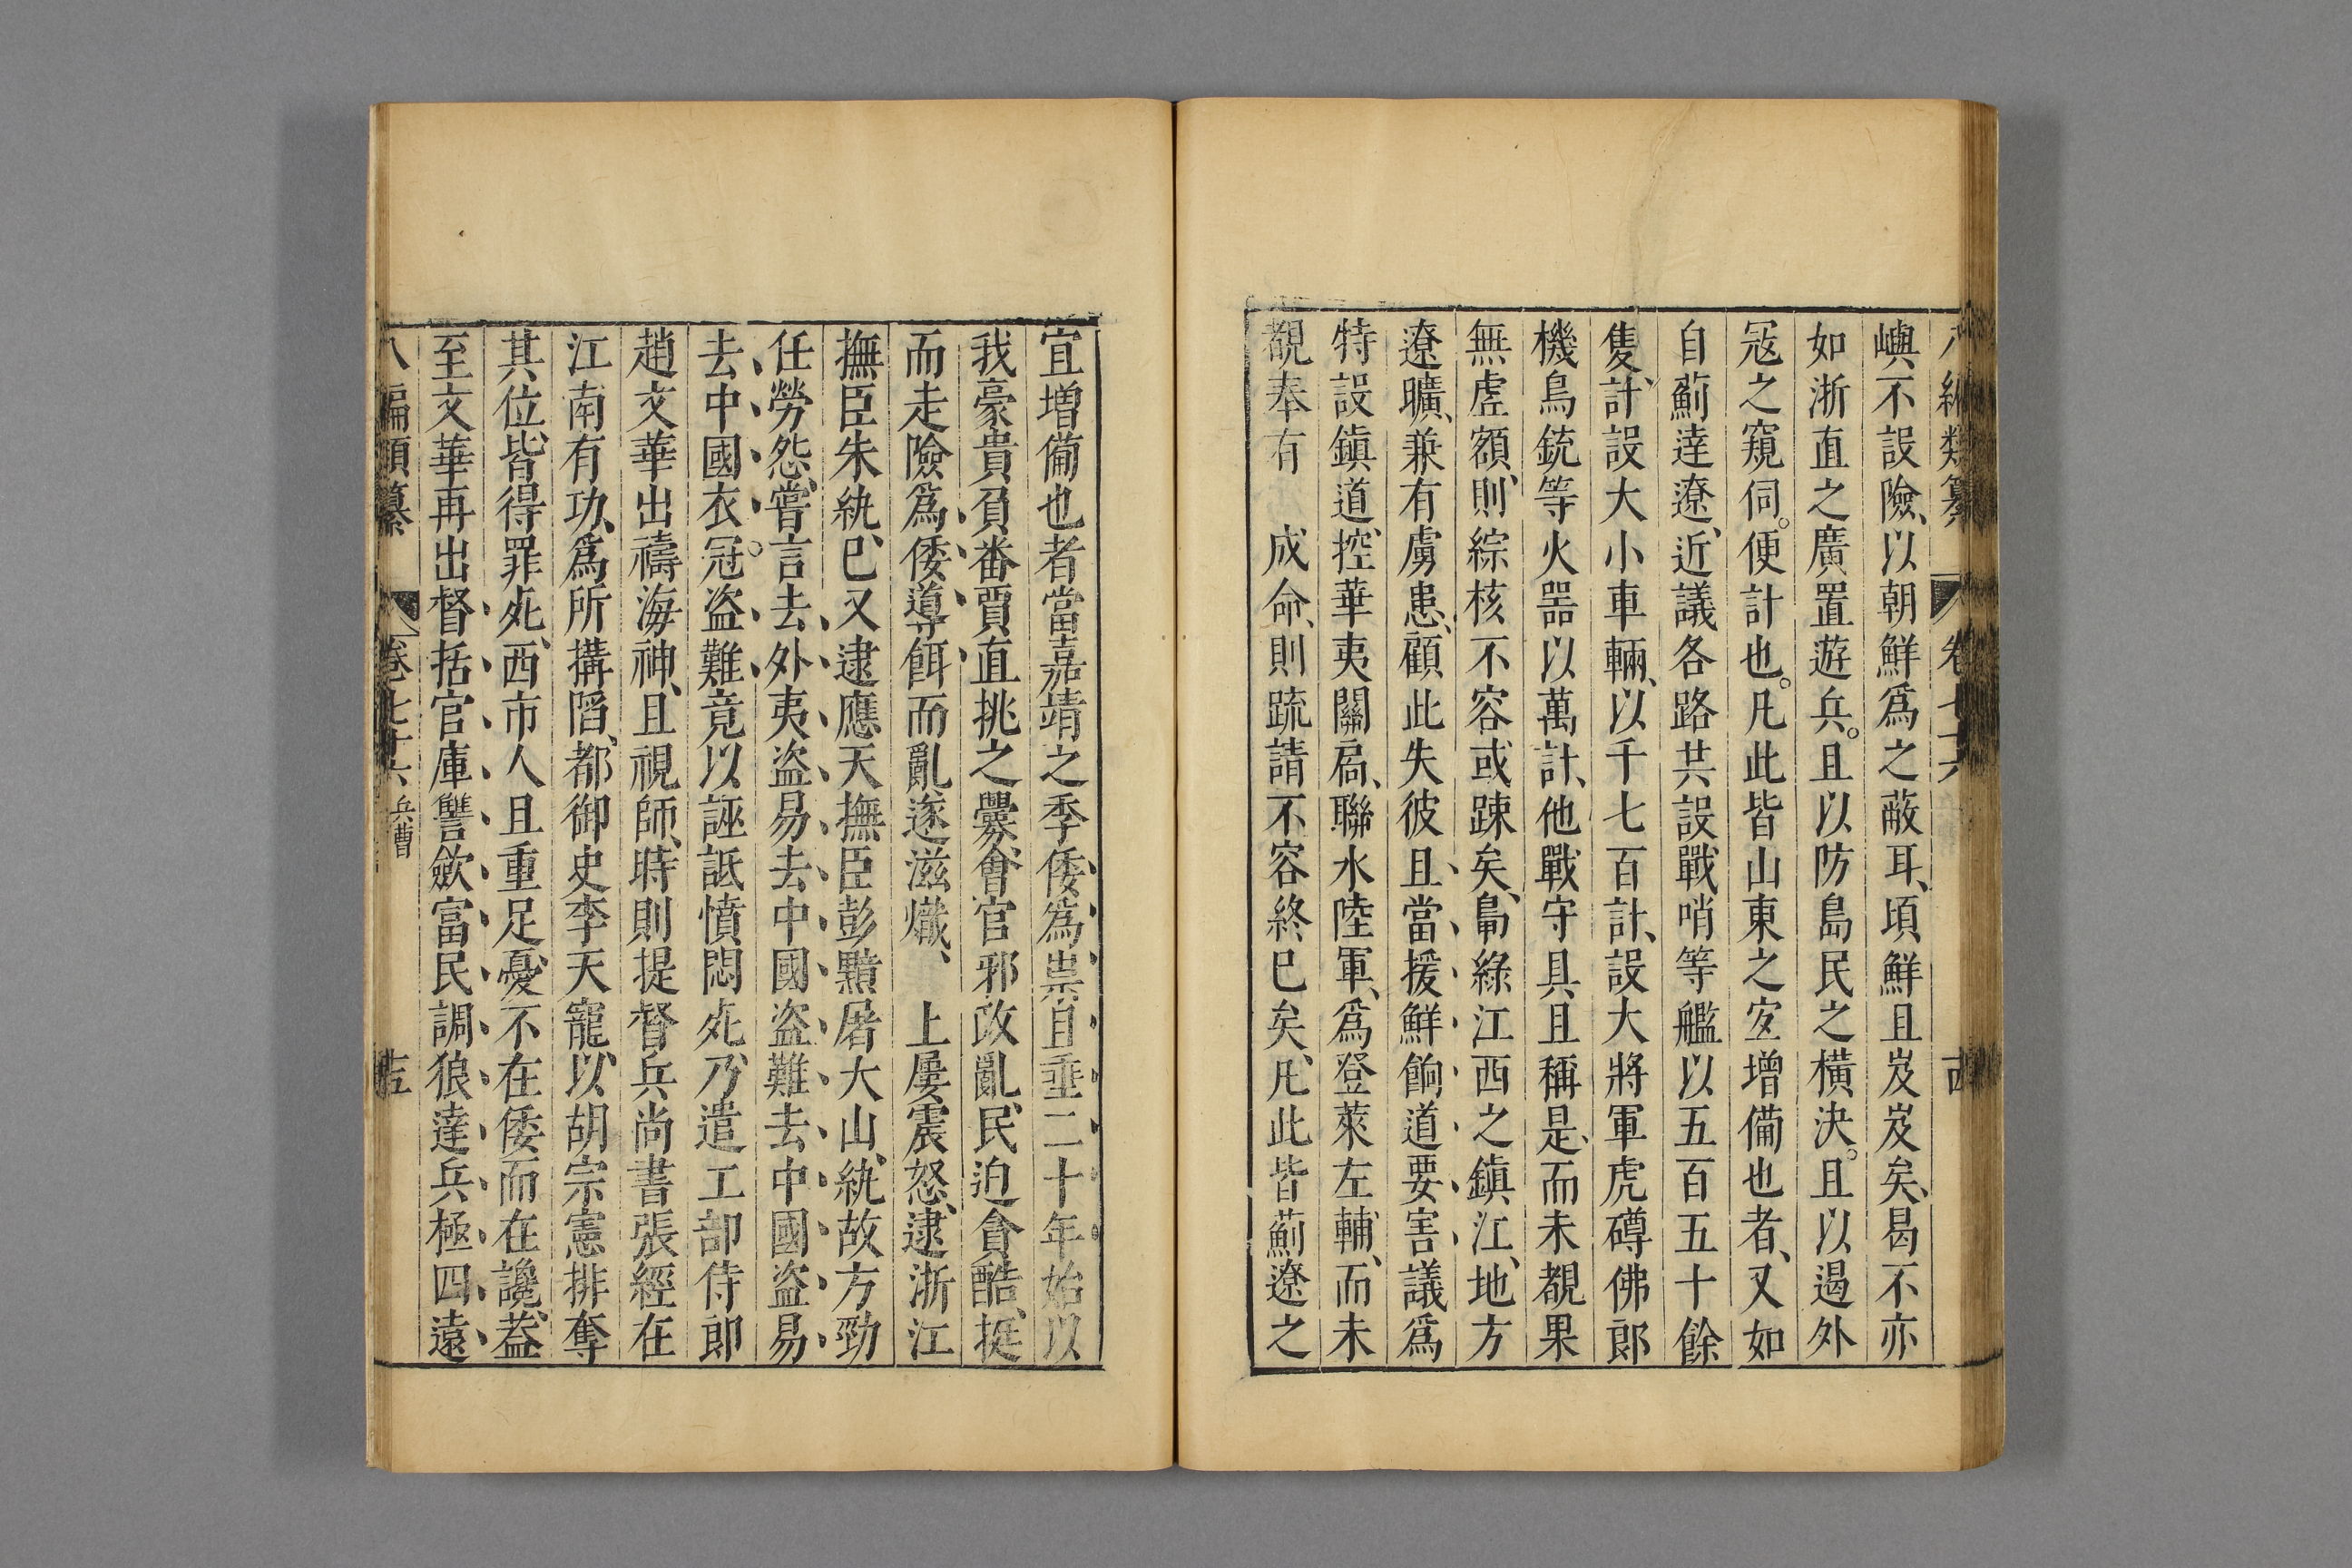 八編類纂 卷七十六 十四
嶼不設險、以朝鮮爲之蔽耳、頃鮮且岌岌矣、曷不亦
如浙直之廣置遊兵。且以防島民之橫決。且以遏外
寇之窺伺。便計也。凡此皆山東之宜增備也者、又如
自薊達遼、近議各路共設戰哨等艦以五百五十餘
隻計、設大小車輛、以千七百計、設大將軍虎磚佛郎
機鳥銃等火器以萬計、他戰守具且稱是、而未覩果
無虛額、則綜核不容或踈矣、鼂綠江西之鎮江、地方
遼曠、兼有虜患、顧此失彼且當援鮮餉道要害議爲
特設鎮道、控華夷關扄、聯水陸軍、爲登萊左輔、而未
覩奉有 成命、則疏請不容終已矣、凡此皆薊遼之
宜增備也者當嘉靖之季倭爲祟自垂二十年始以
我豪貴負番賈直挑之釁、會官邪政亂、民迫貪酷、挺
而走險爲倭導餌而亂遂滋熾、 上屢震怒、逮浙江
撫臣朱紈、已又逮應天撫臣彭黯屠大山、紈故方勁
任勞怨、嘗言去外夷盜易去中國盜難去中國盜易
去中國衣冠。盜難竟以誣詆憤悶死、乃遣工部侍郎
趙文華出禱海神、且視師、時則提督兵尚書張經在
江南有功、爲所搆陷、都御史李天寵、以胡宗憲排奪
其位、皆得罪死、西市人且重足、憂不在倭而在讒、葢
至文華再出督括官庫讐歛富民調狼達兵極四遠
八編類纂 卷七十六 兵曹 十五